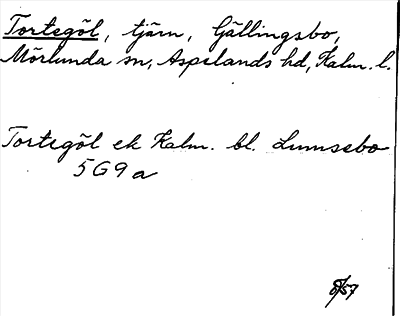 Tortegöl, tjärn, Gällingsbo,
Mörlunda sn, Aspelands hd, Kalm. l.
Tortegöl ek Kalm. bl. Lumsebo
5G9a